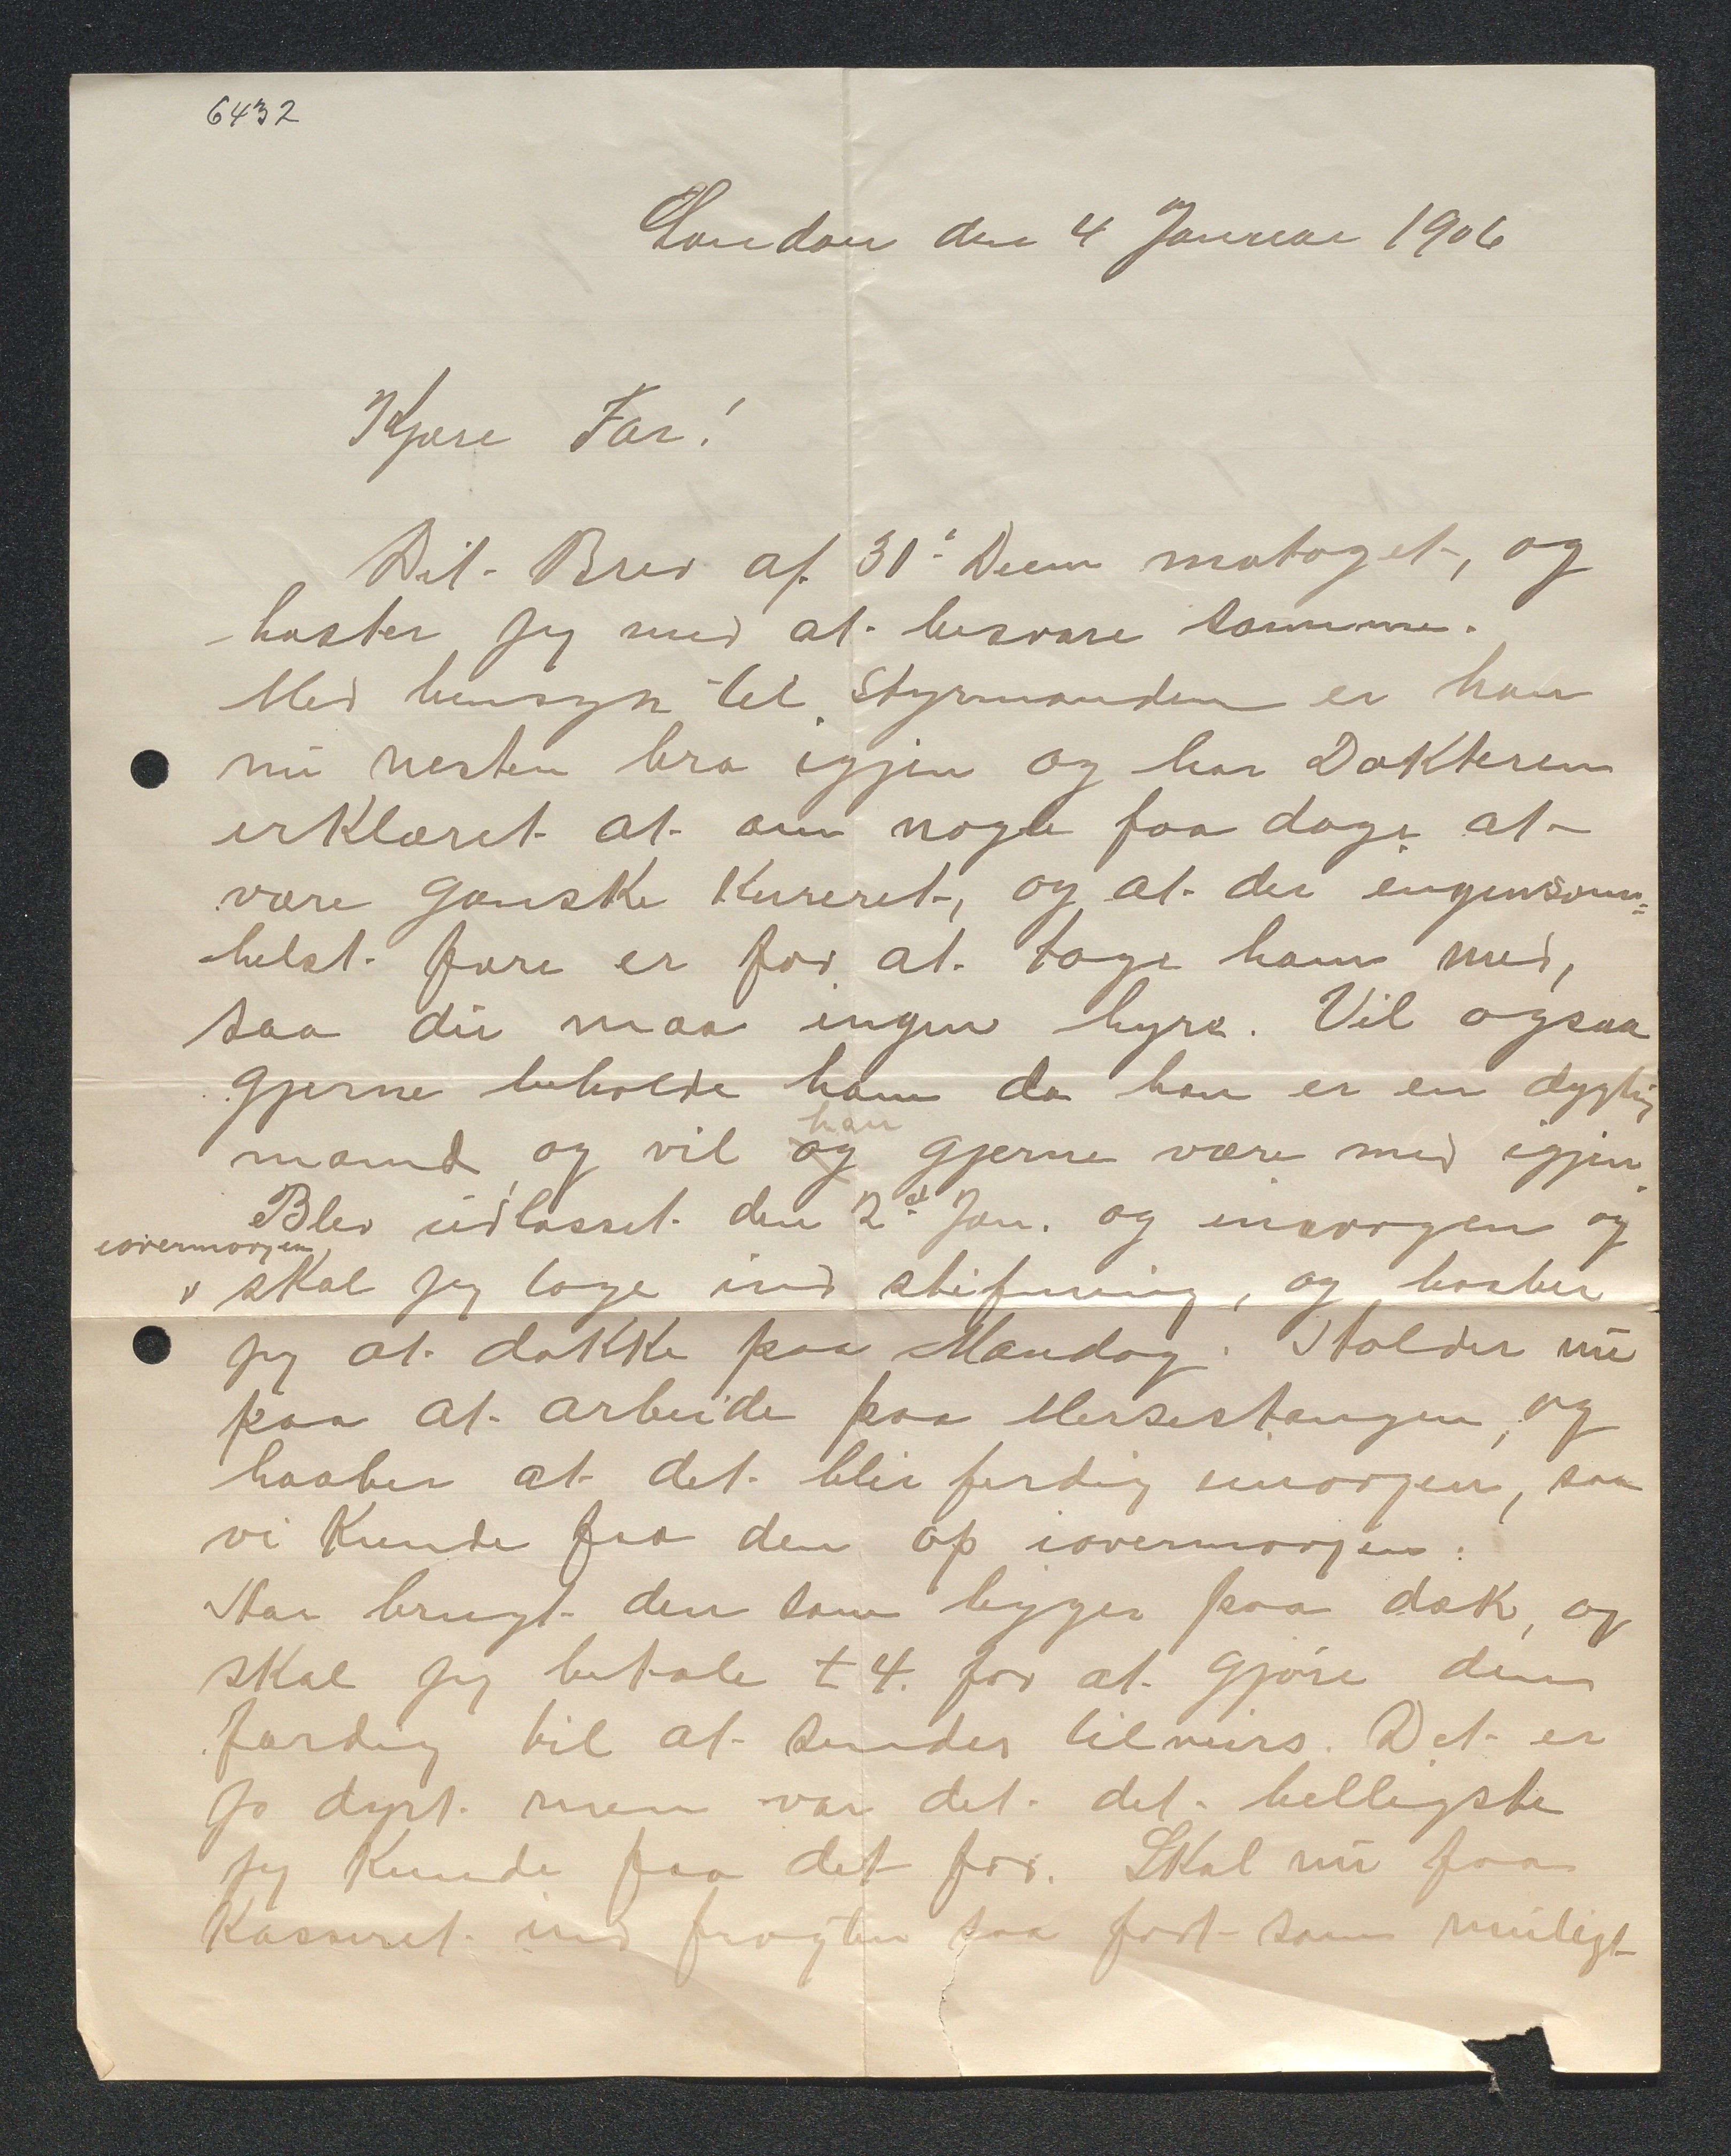 6432
London den 4 Januar 1906
Kjære Far!
Dit Brev af 31' Decm motaget, og
haster jeg med at besvare samme.
Med hensyn til Styrmanden er han
nu nesten bra igjen og har Dokteren
erklæret at om nogle faa dage at
være ganske kureret, og at der ingensom=
helst fare er for at tage ham med,
saa du maa ingen hyre. Vil ogsaa
gjerne beholde ham da han er en dygtig
han
mand, og vil og gjerne være med igjen.
Blev udlosset den 2d Jan. og imorgen og
iovermorgen
skal jeg tage ind stifning, og haaber
jeg at dokke paa Mandag. Holder nu
paa at arbeide paa Mersestangen, og
haaber at det blir ferdig imorgen, saa
vi kunde faa den op iovermorgen.
Har brugt den som ligger paa dæk, og
skal jeg betale £ 4. for at gjøre den
færdig til at sendes tilveirs. Det er
jo dyrt men var det det belligste
jeg kunde faa det for. Skal nu faa
kasseret ind fragten saa fort som muligt